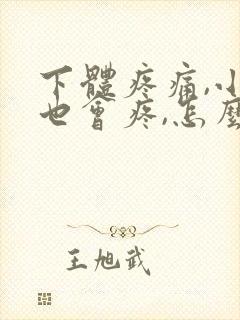 下體疼痛,小
也會疼,怎麼
王旭武